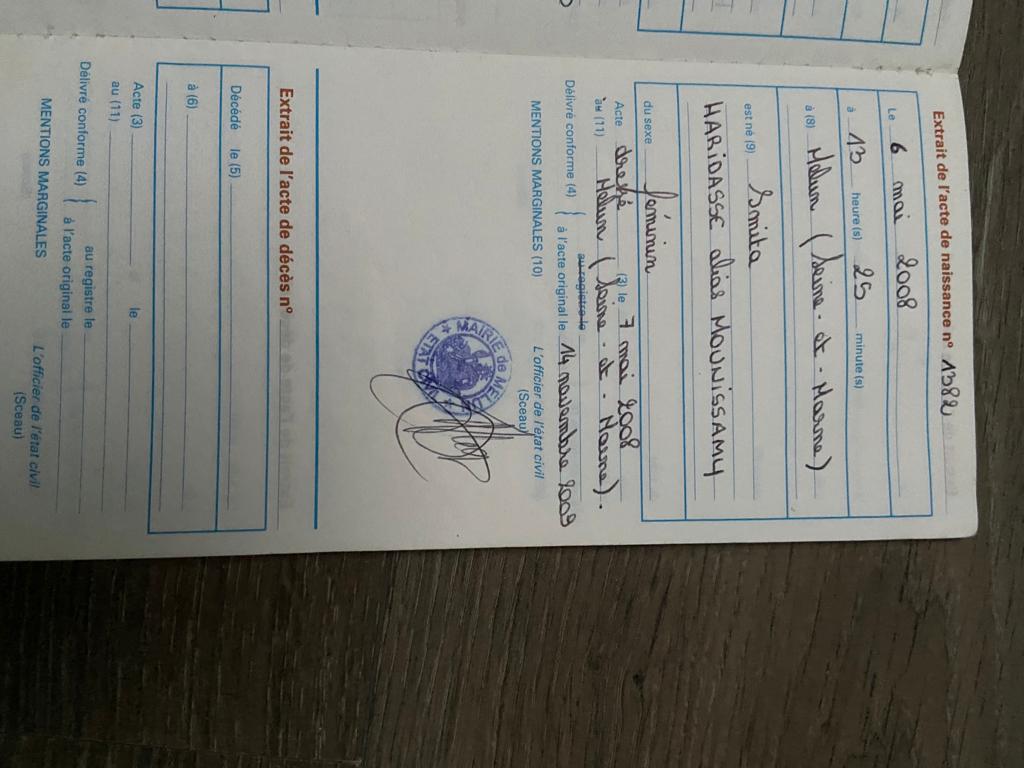 Extrait de l'acte de naissance n° 1382
Le 6 mai 2008
à 13 heure(s) 25 minute(s)
à (8) Melun (Seine-et-Marne)
est né (9) Smita
HARIDASSE alias MOUNISSAMY
du sexe féminin
Acte dressé (3) le 7 mai 2008
au (11) Melun (Seine-et-Marne).
Délivré conforme (4) { au registre le
à l'acte original le 14 novembre 2009
MENTIONS MARGINALES (10) L'officier de l'état civil
(Sceau)
MAIRIE de
ÉTAT CIVIL
Extrait de l'acte de décès n°
Décédé le (5)
à (6)
Acte (3) le
au (11)
Délivré conforme (4) { au registre le
à l'acte original le
MENTIONS MARGINALES L'officier de l'état civil
(Sceau)